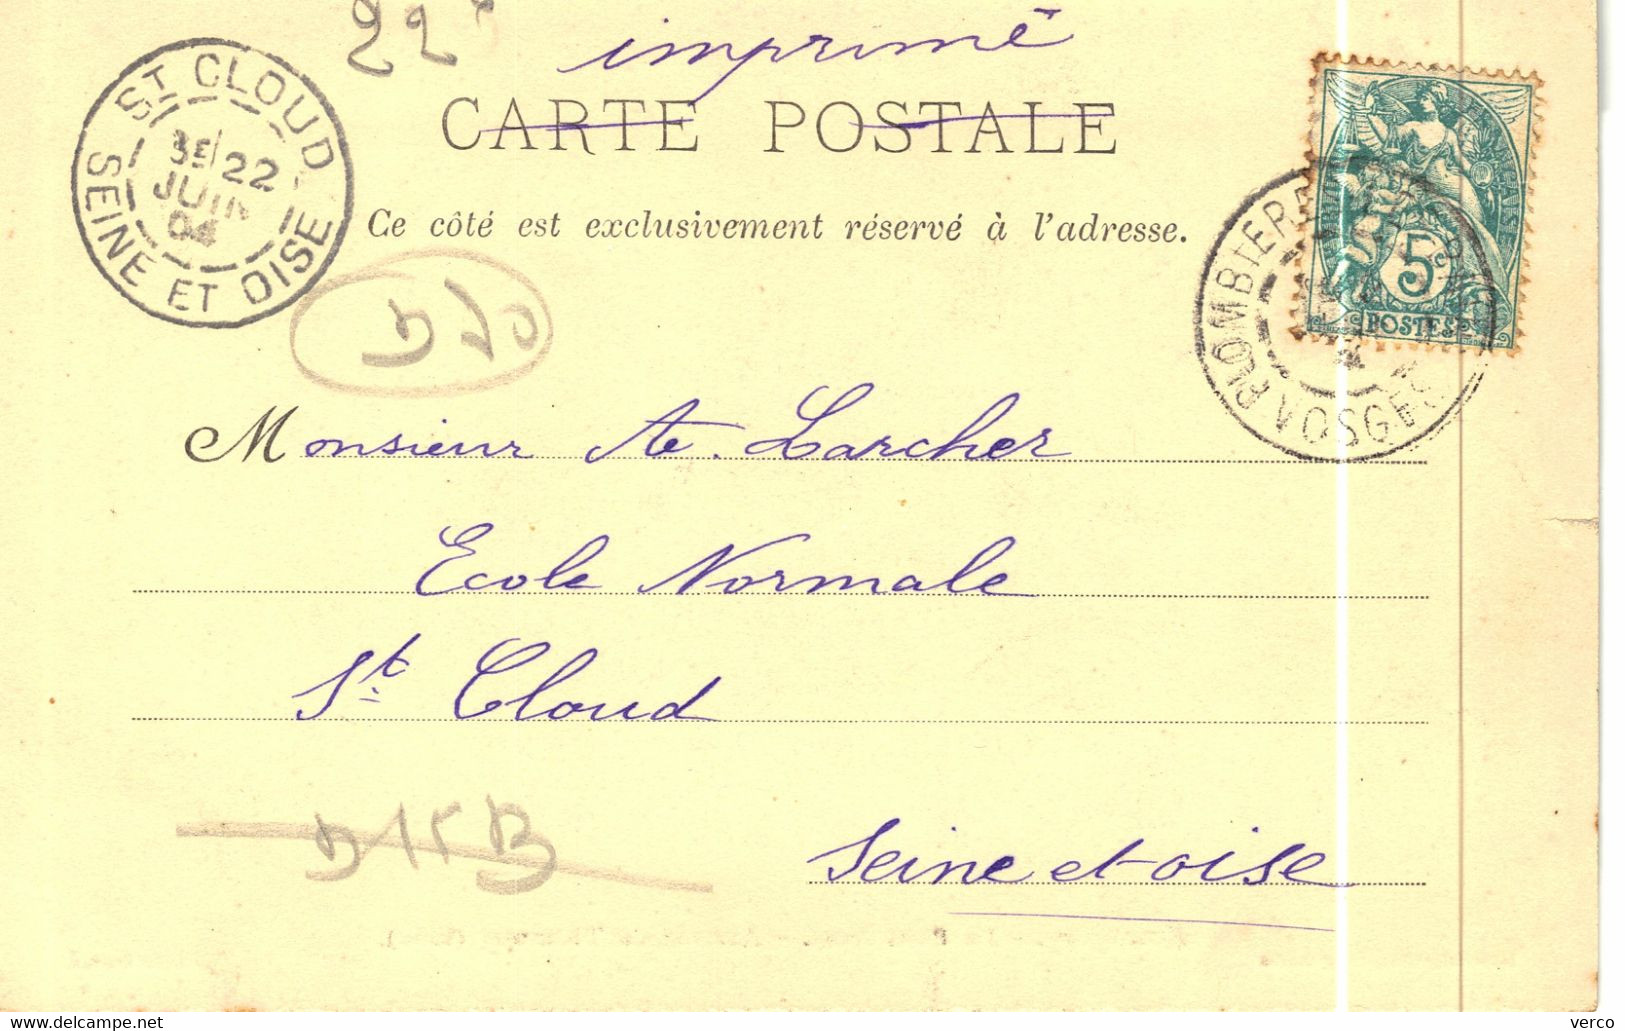 22
imprimé
CARTE POSTALE
ST CLOUD
3E / 22
JUIN
04
SEINE ET OISE
Ce côté est exclusivement réservé à l'adresse.
PLOMBIERES
VOSGES
5c
POSTES
D 70
Monsieur A. Larcher
Ecole Normale
St Cloud
D 15 B
Seine et oise
verco